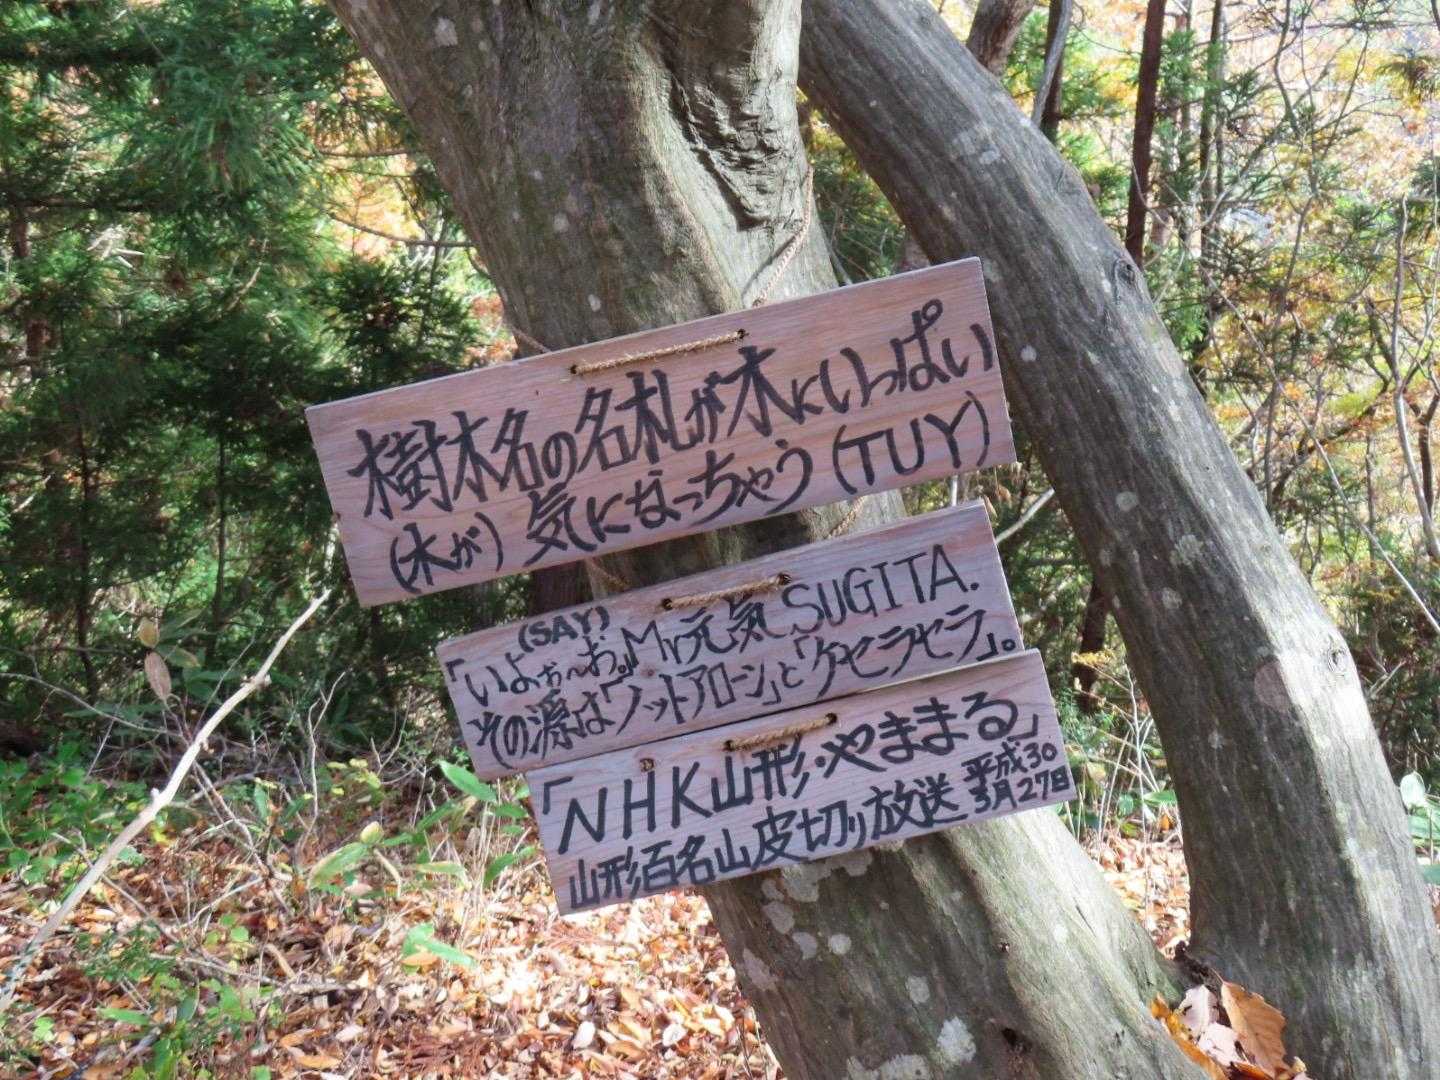 樹木名の名札が木にいっぱい
(木が) 気になっちゃう (TUY)
(SAY)
「いよぉ〜お。」Mr元気SUGITA.
その源は「ノットアローン」と「ケセラセラ」。
「NHK山形・やままる」
山形百名山皮切り放送 平成30
3月27日